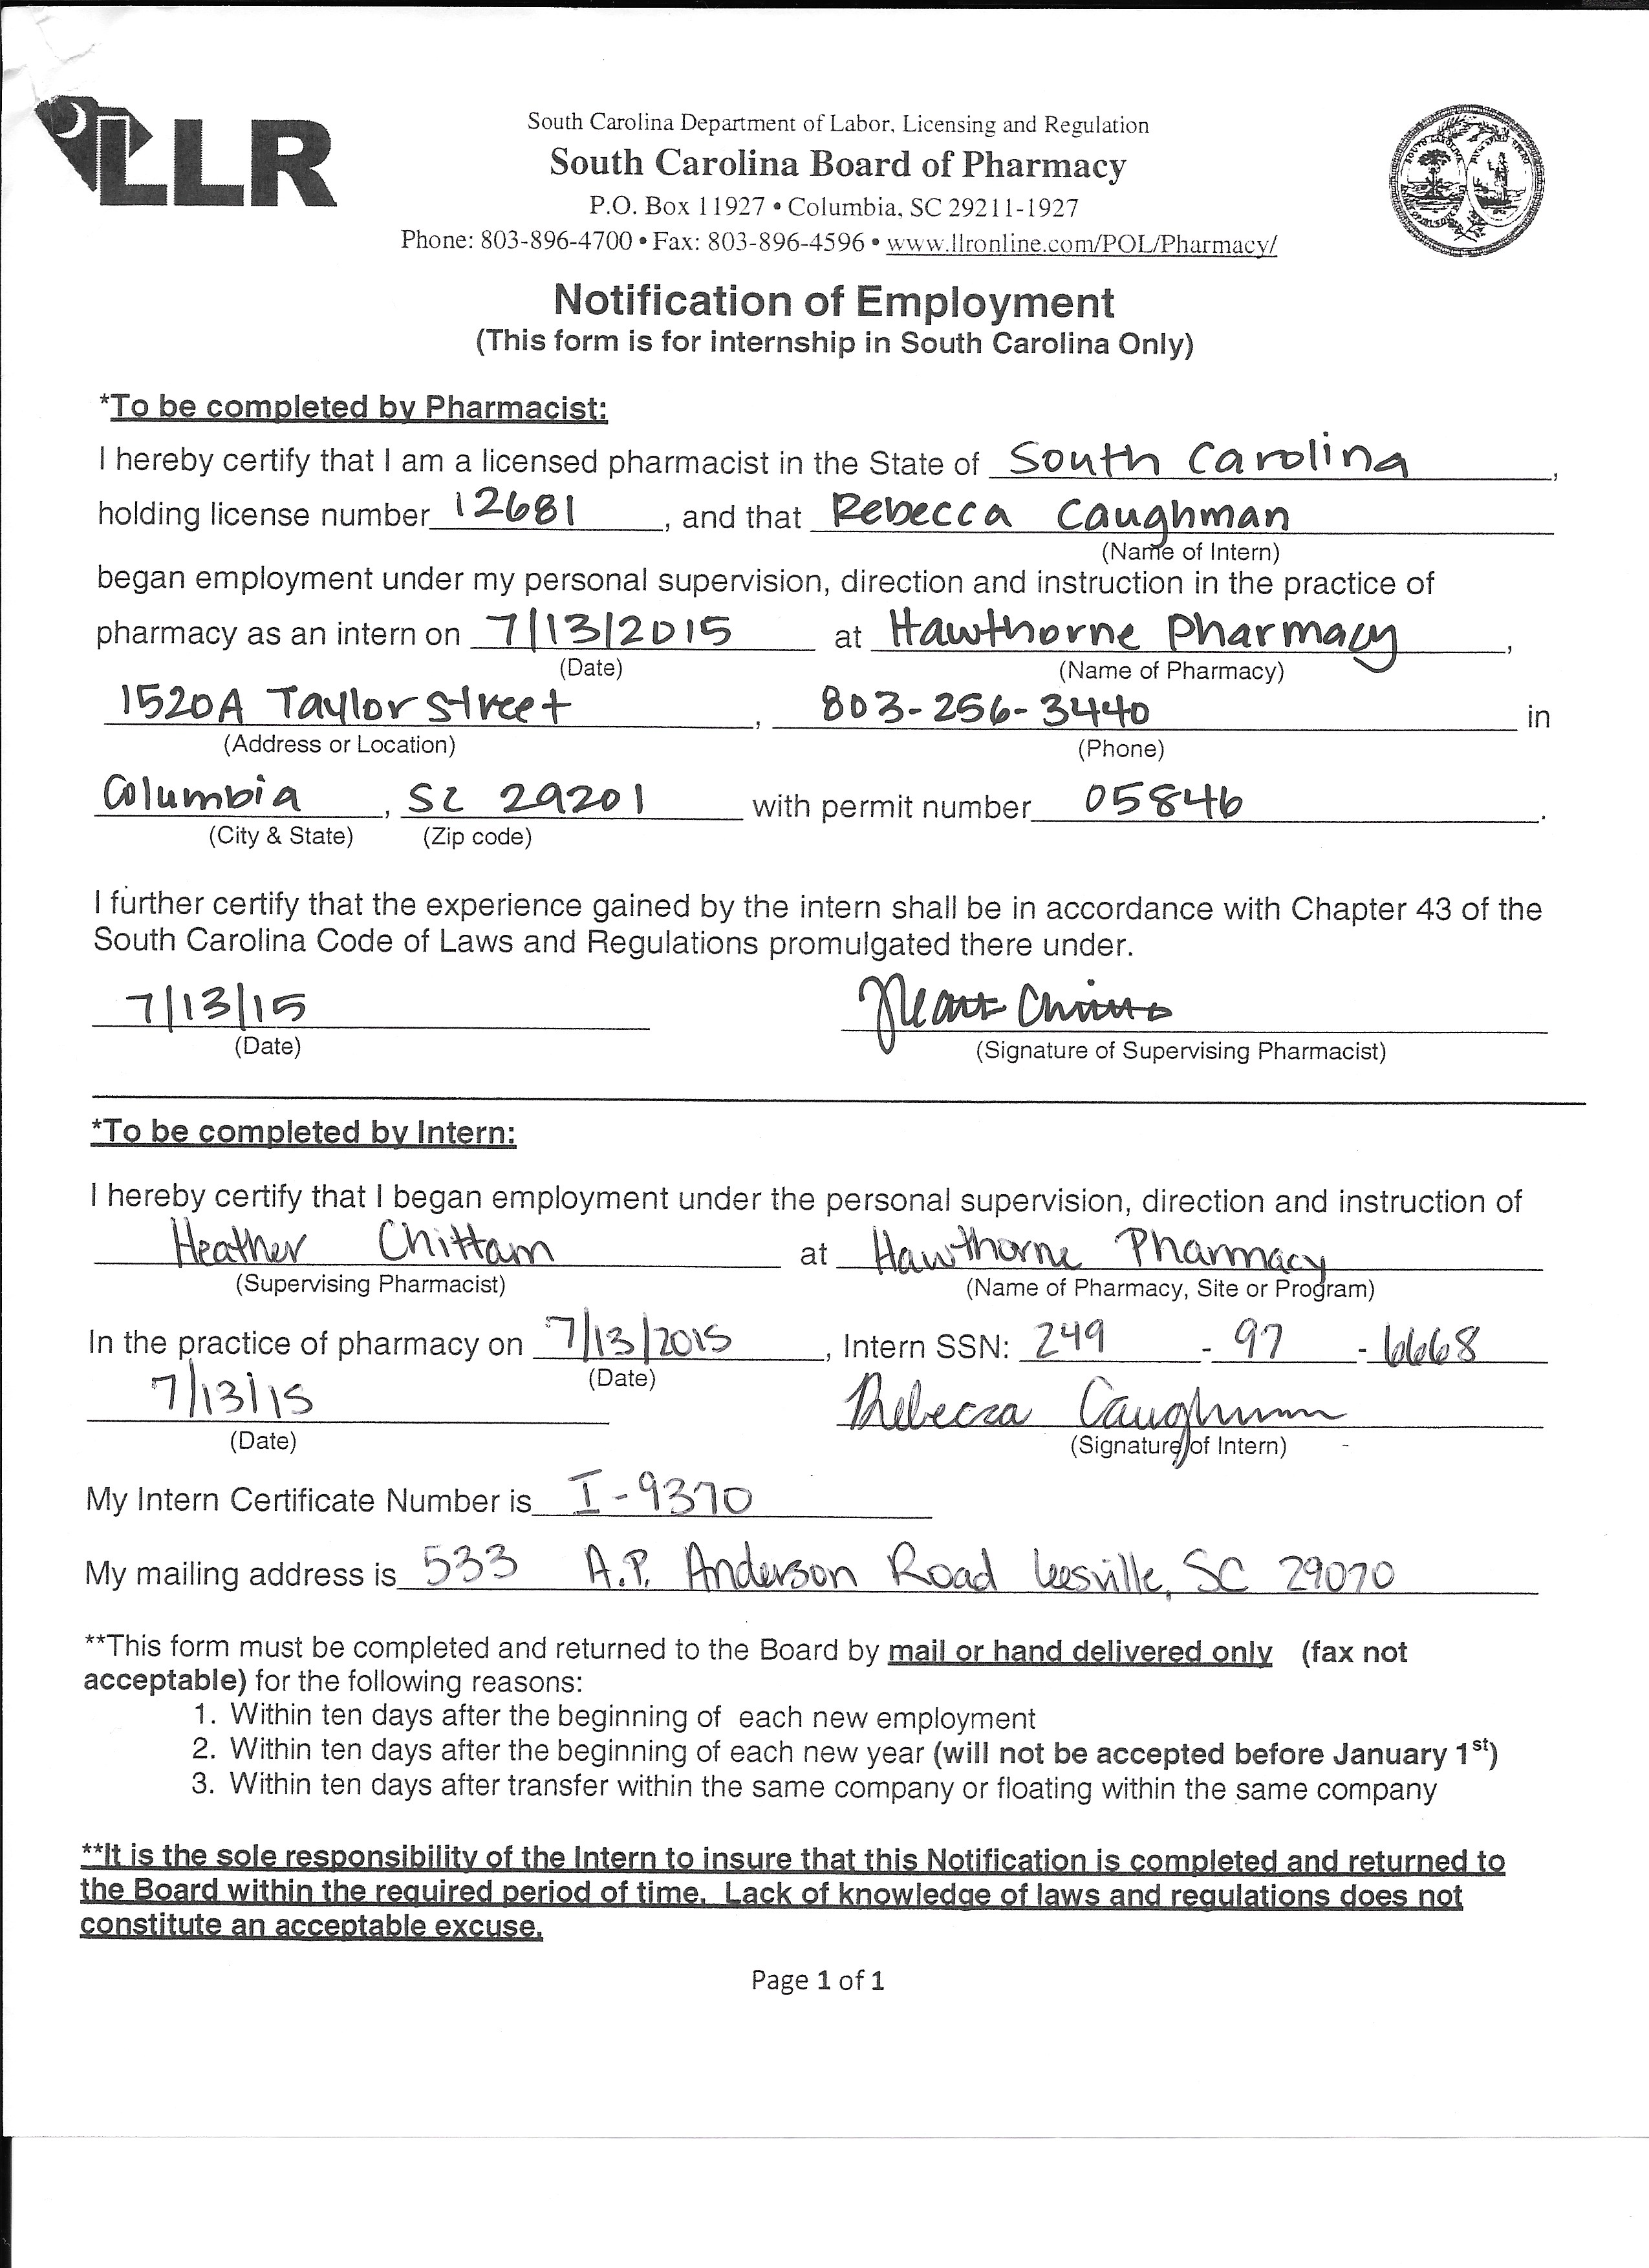 LLR
South Carolina Department of Labor, Licensing and Regulation
South Carolina Board of Pharmacy
P.O. Box 11927 • Columbia, SC 29211-1927
Phone: 803-896-4700 • Fax: 803-896-4596 • www.llronline.com/POL/Pharmacy/
Notification of Employment
(This form is for internship in South Carolina Only)
*To be completed by Pharmacist:
I hereby certify that I am a licensed pharmacist in the State of South Carolina,
holding license number 12681, and that Rebecca Caughman
(Name of Intern)
began employment under my personal supervision, direction and instruction in the practice of
pharmacy as an intern on 7/13/2015 at Hawthorne Pharmacy,
(Date) (Name of Pharmacy)
1520A Taylor Street, 803-256-3440 in
(Address or Location) (Phone)
Columbia, SC 29201 with permit number 05846.
(City & State) (Zip code)
I further certify that the experience gained by the intern shall be in accordance with Chapter 43 of the
South Carolina Code of Laws and Regulations promulgated there under.
7/13/15
(Date) (Signature of Supervising Pharmacist)
*To be completed by Intern:
I hereby certify that I began employment under the personal supervision, direction and instruction of
Heather Chittam at Hawthorne Pharmacy
(Supervising Pharmacist) (Name of Pharmacy, Site or Program)
In the practice of pharmacy on 7/13/2015, Intern SSN: 249 - 97 - 6668
(Date)
7/13/15 Rebecca Caughman
(Date) (Signature of Intern)
My Intern Certificate Number is I-9370
My mailing address is 533 A.P. Anderson Road Leesville, SC 29070
**This form must be completed and returned to the Board by mail or hand delivered only (fax not
acceptable) for the following reasons:
1. Within ten days after the beginning of each new employment
2. Within ten days after the beginning of each new year (will not be accepted before January 1st)
3. Within ten days after transfer within the same company or floating within the same company
**It is the sole responsibility of the Intern to insure that this Notification is completed and returned to
the Board within the required period of time. Lack of knowledge of laws and regulations does not
constitute an acceptable excuse.
Page 1 of 1